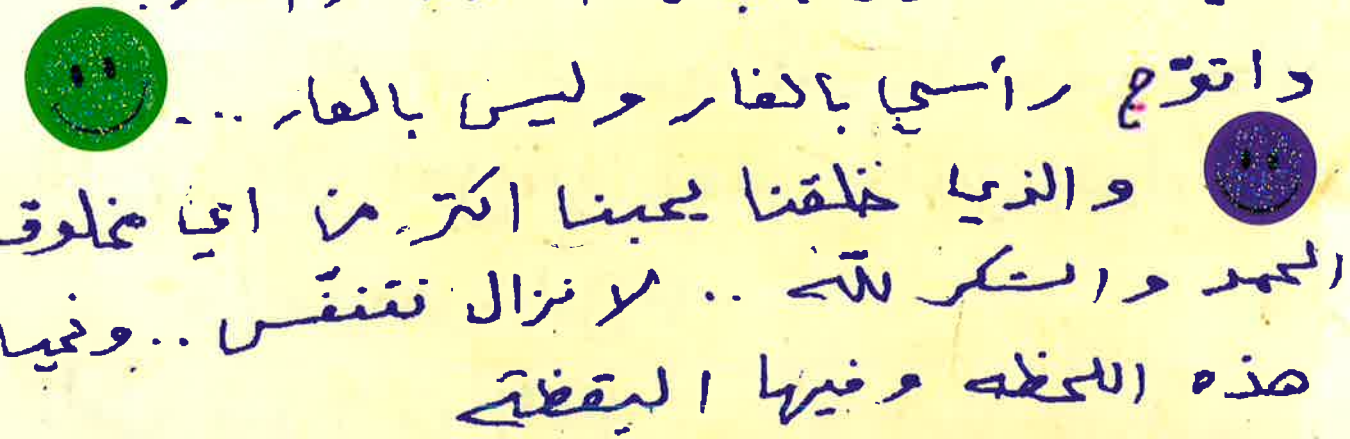 واتوّج رأسي بالغار وليس بالعار ...
والذي خلقنا يحبنا اكثر من اي مخلوق
الحمد والشكر للّه .. لا نزال نتنفّس .. ونحيا
هذه اللحظه وفيها اليقظة